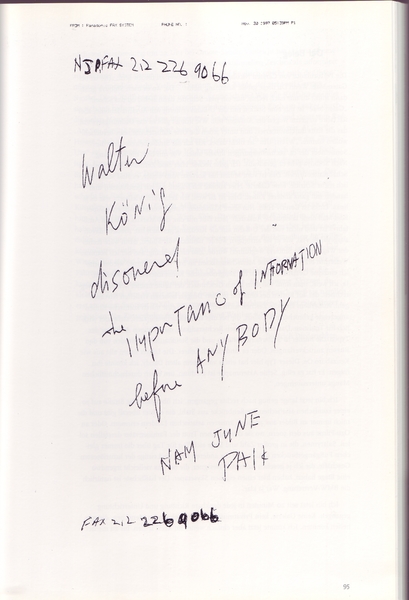 FROM : Panasonic FAX SYSTEM PHONE NO. :
NJPFAX 212 226 9066
Walter
König
disovered
the
IMporTanc of INFORNATION
before ANYBODY
NAM JUNE
PAIK
FAX 212 226 9066
95